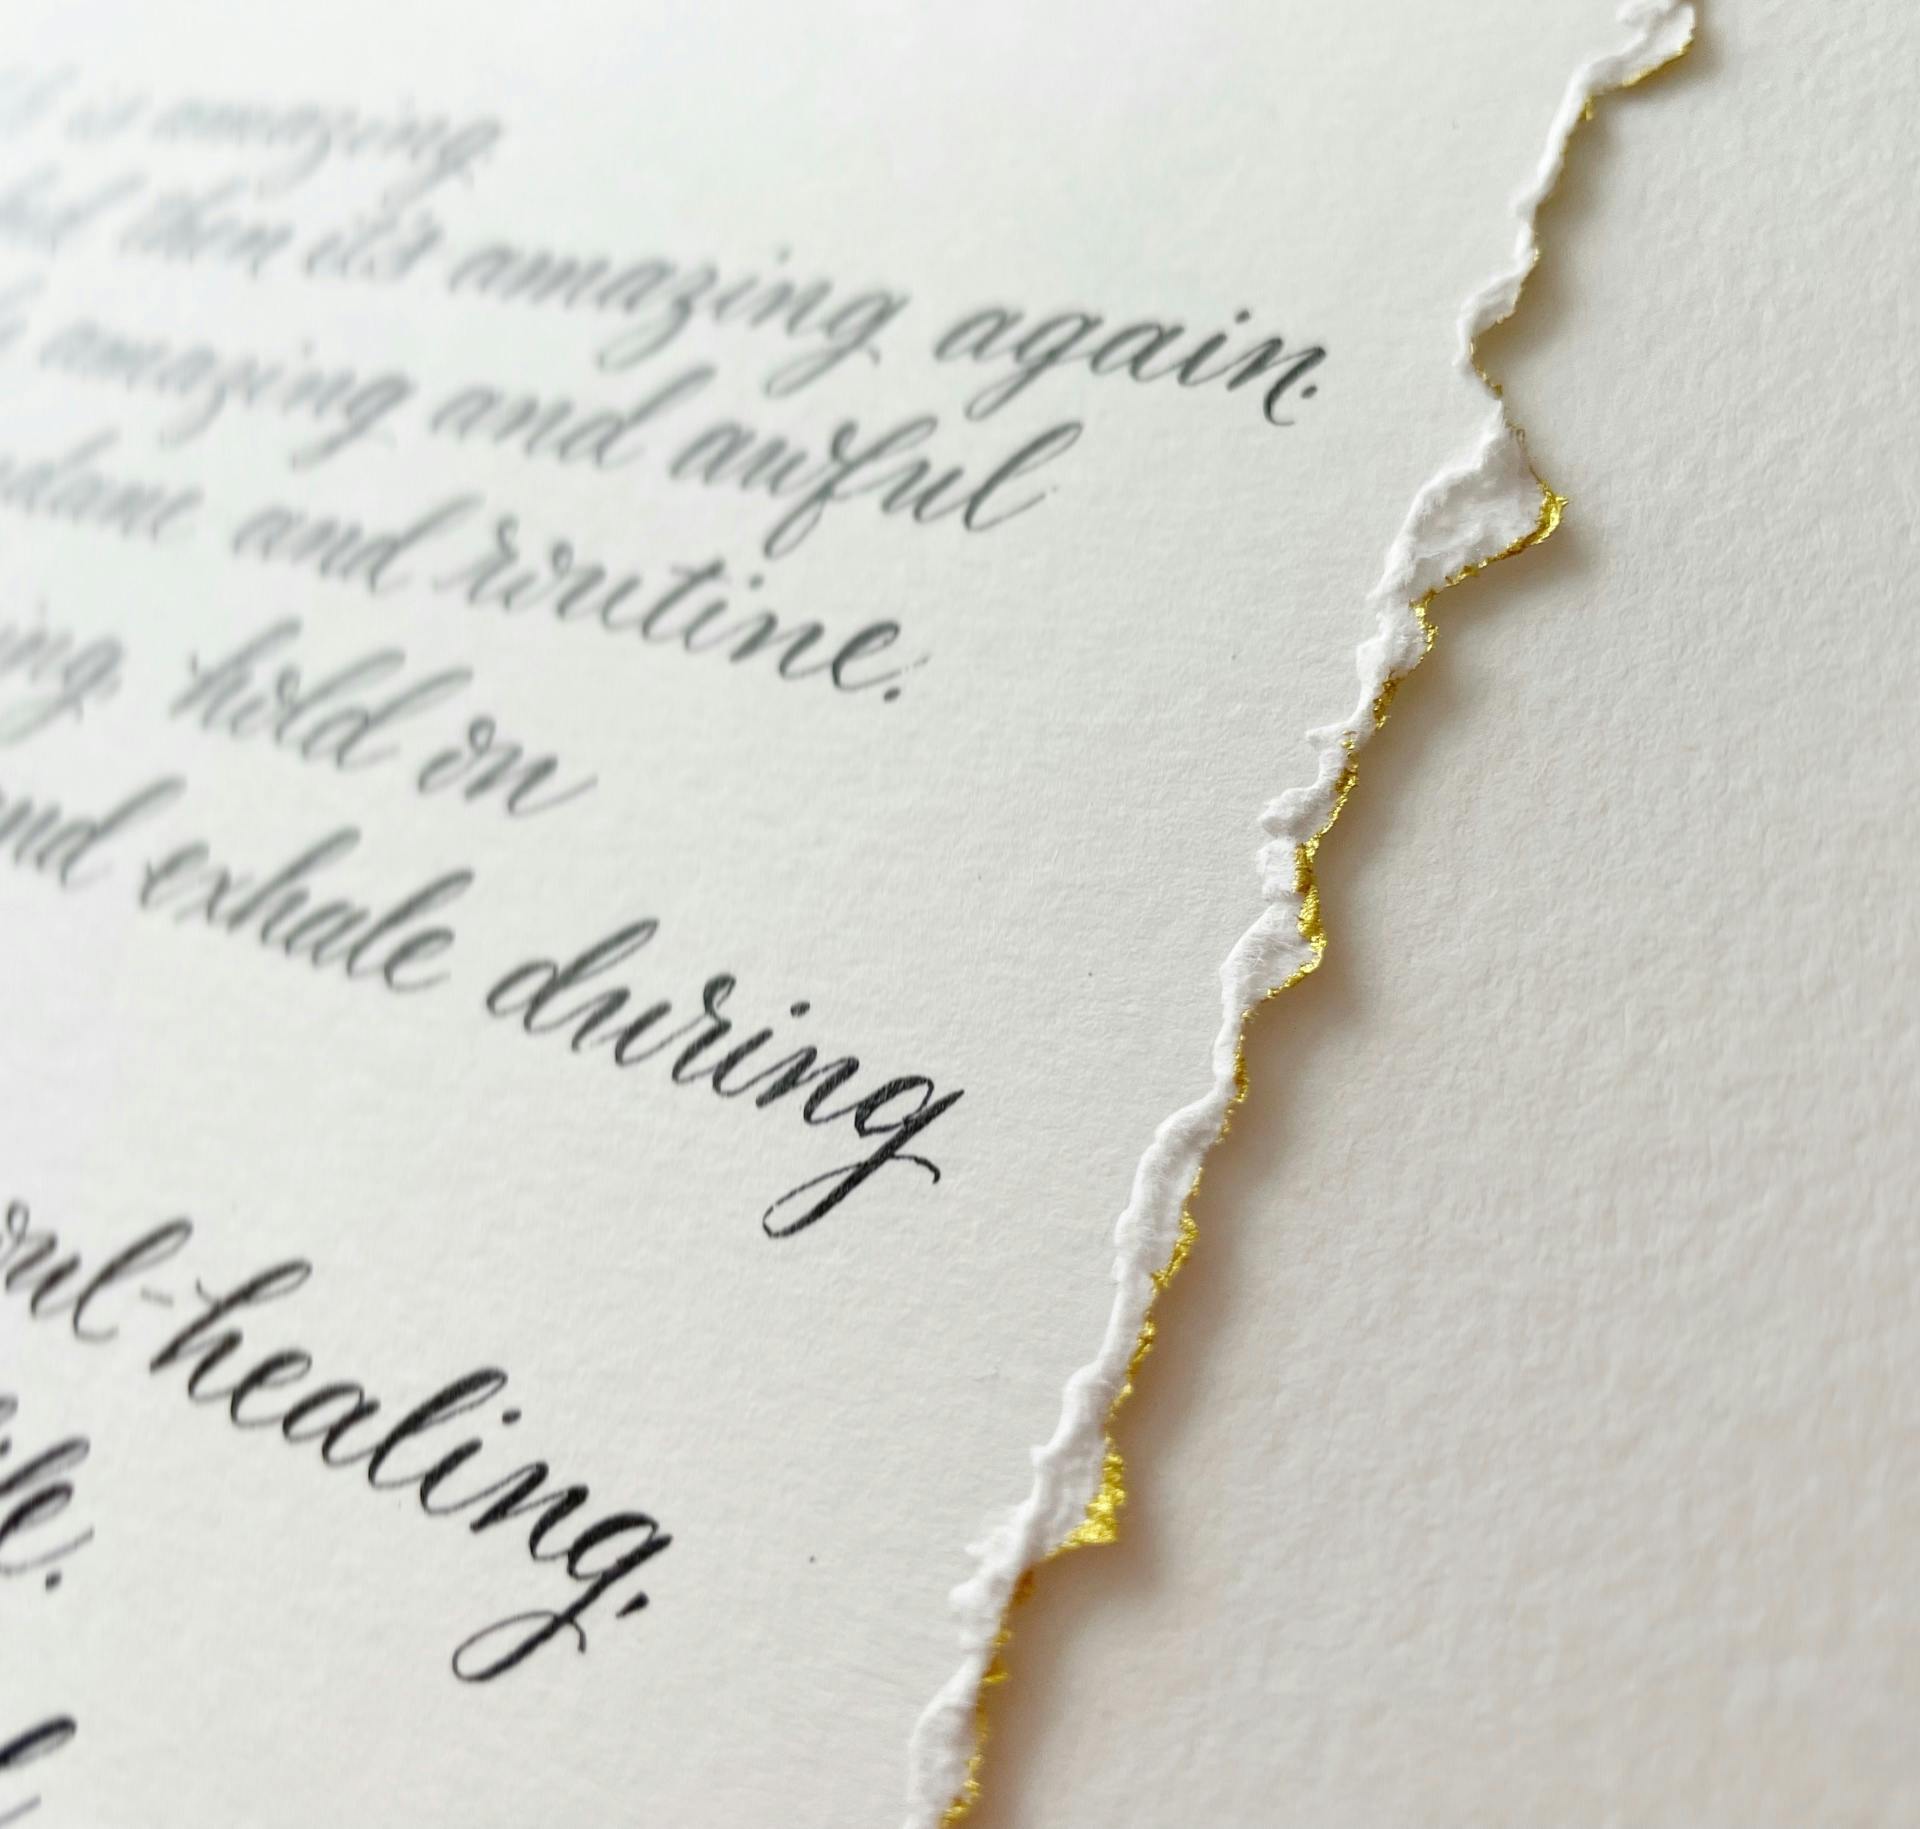 is amazing
then it's amazing again.
amazing and awful
and routine.
hold on
and exhale during
healing,